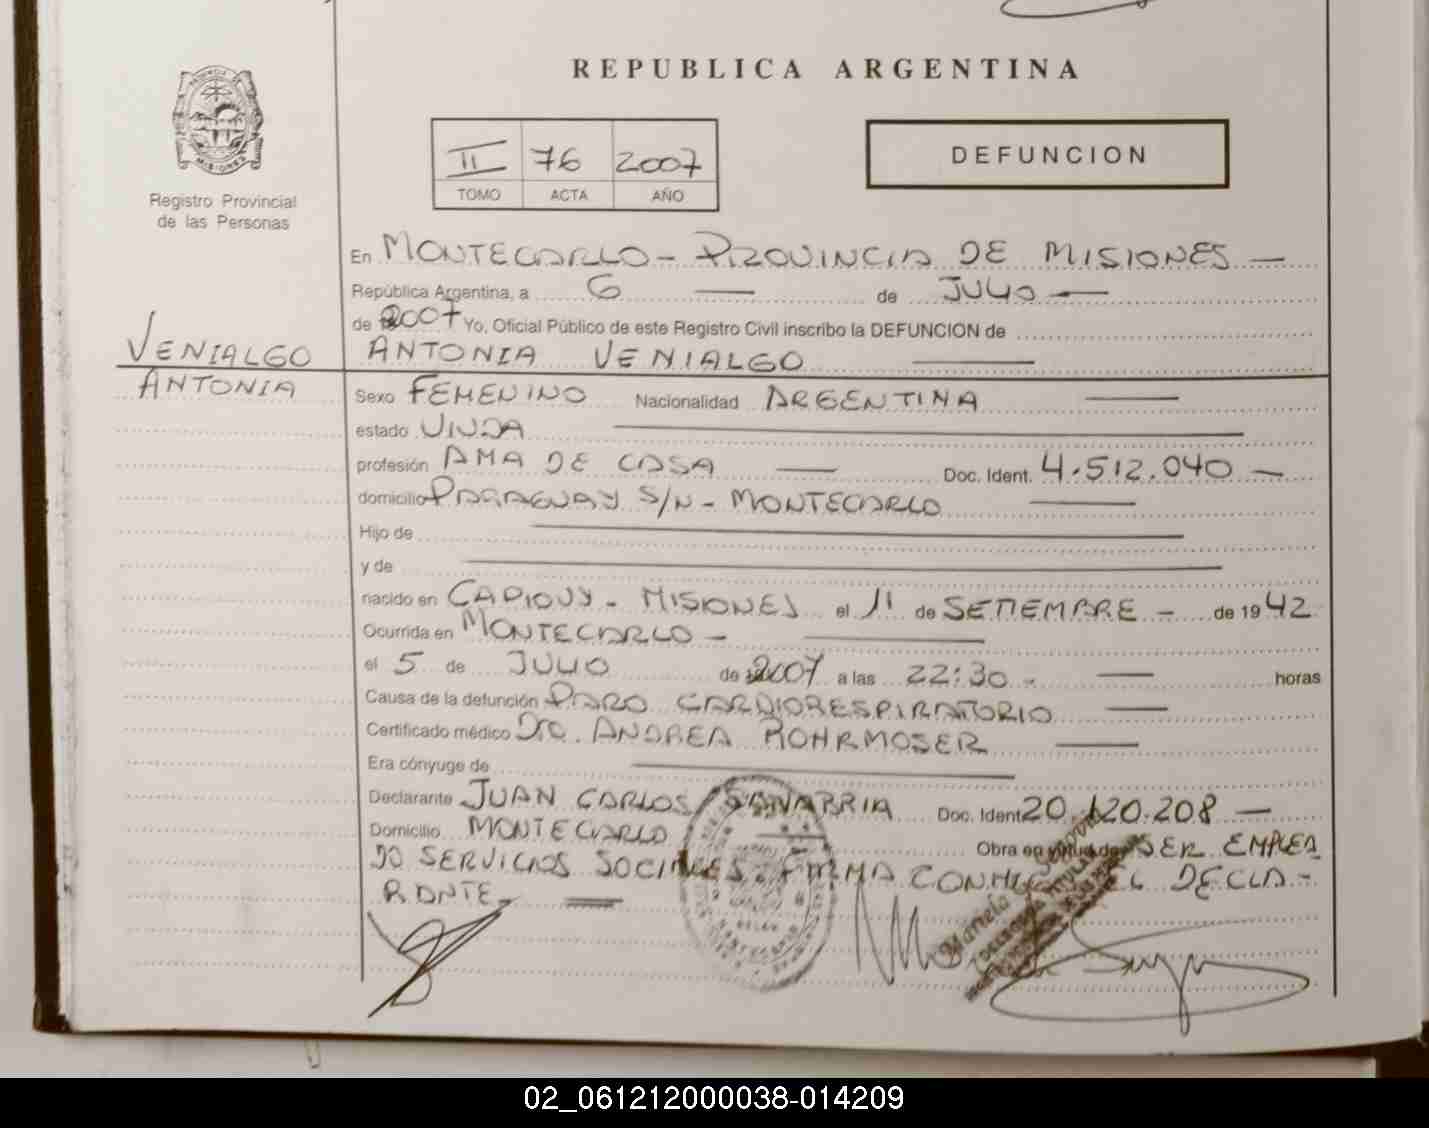 REPUBLICA ARGENTINA
PROVINCIA DE
MISIONES
Registro Provincial
de las Personas
II 76 2007
TOMO ACTA AÑO
DEFUNCION
En MONTECARLO - PROVINCIA DE MISIONES -
República Argentina, a 6 — de JULIO —
de 2007 Yo, Oficial Público de este Registro Civil inscribo la DEFUNCION de
VENIALGO
ANTONIA
ANTONIA VENIALGO —
Sexo FEMENINO Nacionalidad ARGENTINA —
estado VIUDA —
profesión AMA DE CASA — Doc. Ident. 4.512.040 -
domicilio PARAGUAY S/N - MONTECARLO —
Hijo de —
y de —
nacido en CAPIOVY - MISIONES el 11 de SETIEMBRE - de 1942
Ocurrida en MONTECARLO - —
el 5 de JULIO de 2007 a las 22:30 - — horas
Causa de la defunción PARO CARDIORESPIRATORIO —
Certificado médico DRA. ANDREA ROHRMOSER —
Era cónyuge de —
Declarante JUAN CARLOS SANABRIA Doc. Ident. 20.120.208 —
Domicilio MONTECARLO — Obra en virtud de SER EMPLEA
DO SERVICIOS SOCIALES. FIRMA CONMIGO EL DECLA-
RANTE - —
02_061212000038-014209